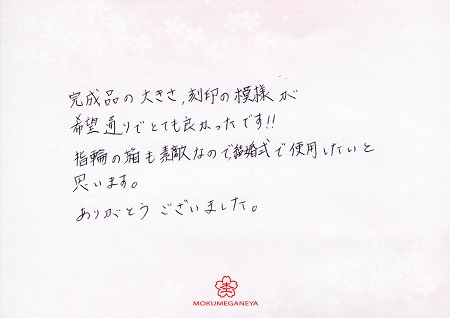 完成品の大きさ,刻印の模様が
希望通りでとても良かったです!!
指輪の箱も素敵なので結婚式で使用したいと
思います。
ありがとうございました。
MOKUMEGANEYA